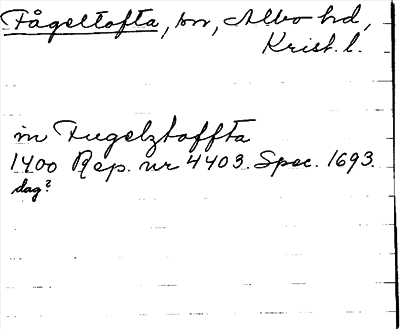 Fågeltofta, sn, Albo hd,
Krist. l.
in Fugelztoffta
1400 Rep. nr 4403. Spec. 1693.
dag?